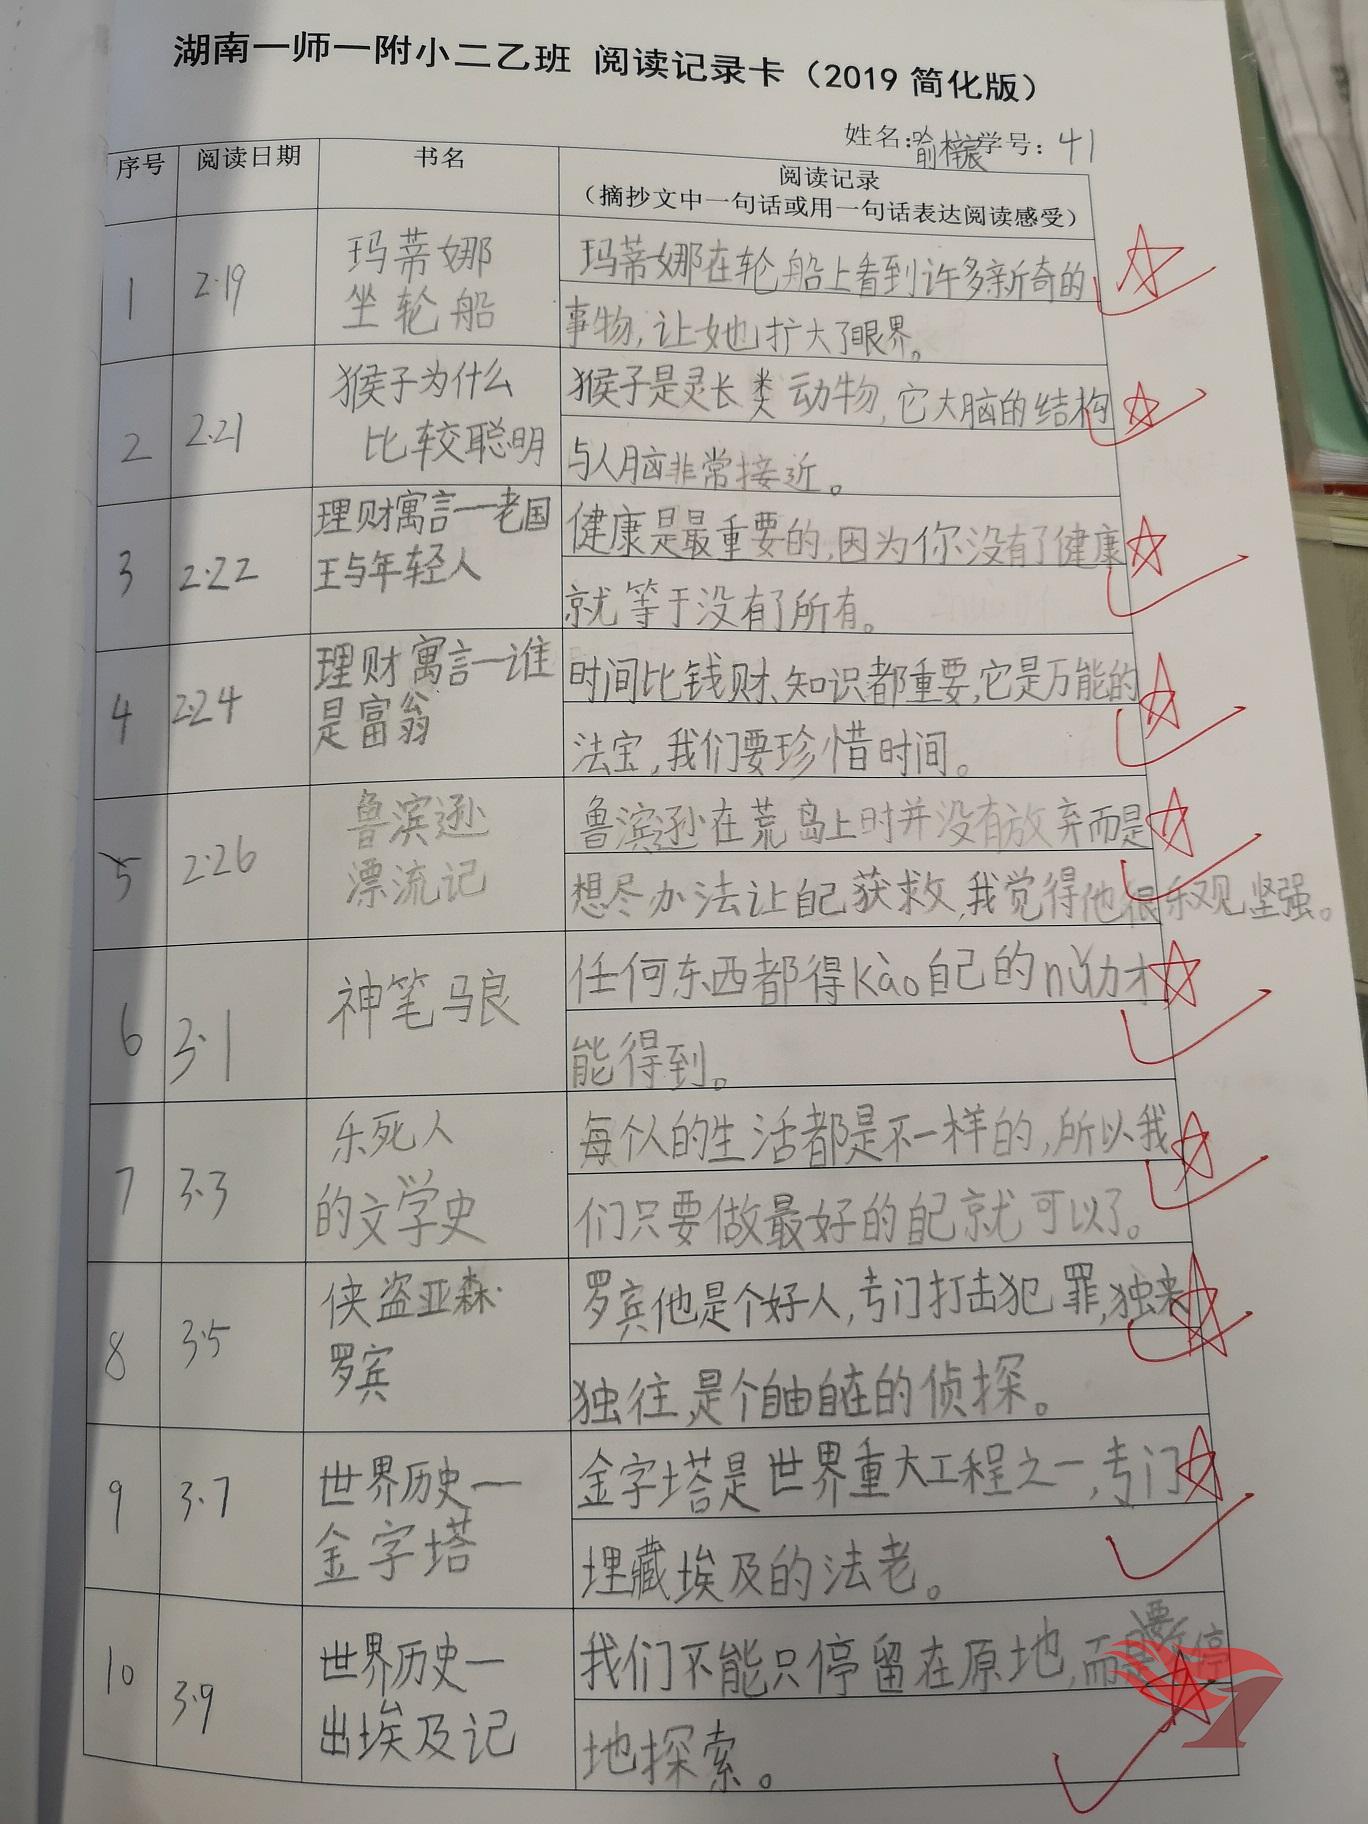 湖南一师一附小二乙班 阅读记录卡（2019 简化版）
姓名：喻梓宸 学号：41
序号 阅读日期 书名 阅读记录
（摘抄文中一句话或用一句话表达阅读感受）
1 2·19 玛蒂娜 玛蒂娜在轮船上看到许多新奇的
坐轮船 事物，让她扩大了眼界。
2 2·21 猴子为什么 猴子是灵长类动物，它大脑的结构
比较聪明 与人脑非常接近。
3 2·22 理财寓言—老国 健康是最重要的，因为你没有了健康
王与年轻人 就等于没有了所有。
4 2·24 理财寓言—谁 时间比钱财、知识都重要，它是万能的
是富翁 法宝，我们要珍惜时间。
5 2·26 鲁滨逊 鲁滨逊在荒岛上时并没有放弃而是
漂流记 想尽办法让自己获救，我觉得他很乐观、坚强。
6 3·1 神笔马良 任何东西都得kào自己的nǔ力才
能得到。
7 3·3 乐死人 每个人的生活都是不一样的，所以我
的文学史 们只要做最好的自己就可以了。
8 3·5 侠盗亚森· 罗宾他是个好人，专门打击犯罪，独来
罗宾 独往，是个自由自在的侦探。
9 3·7 世界历史— 金字塔是世界重大工程之一，专门
金字塔 埋藏埃及的法老。
10 3·9 世界历史— 我们不能只停留在原地，而要不停
出埃及记 地探索。